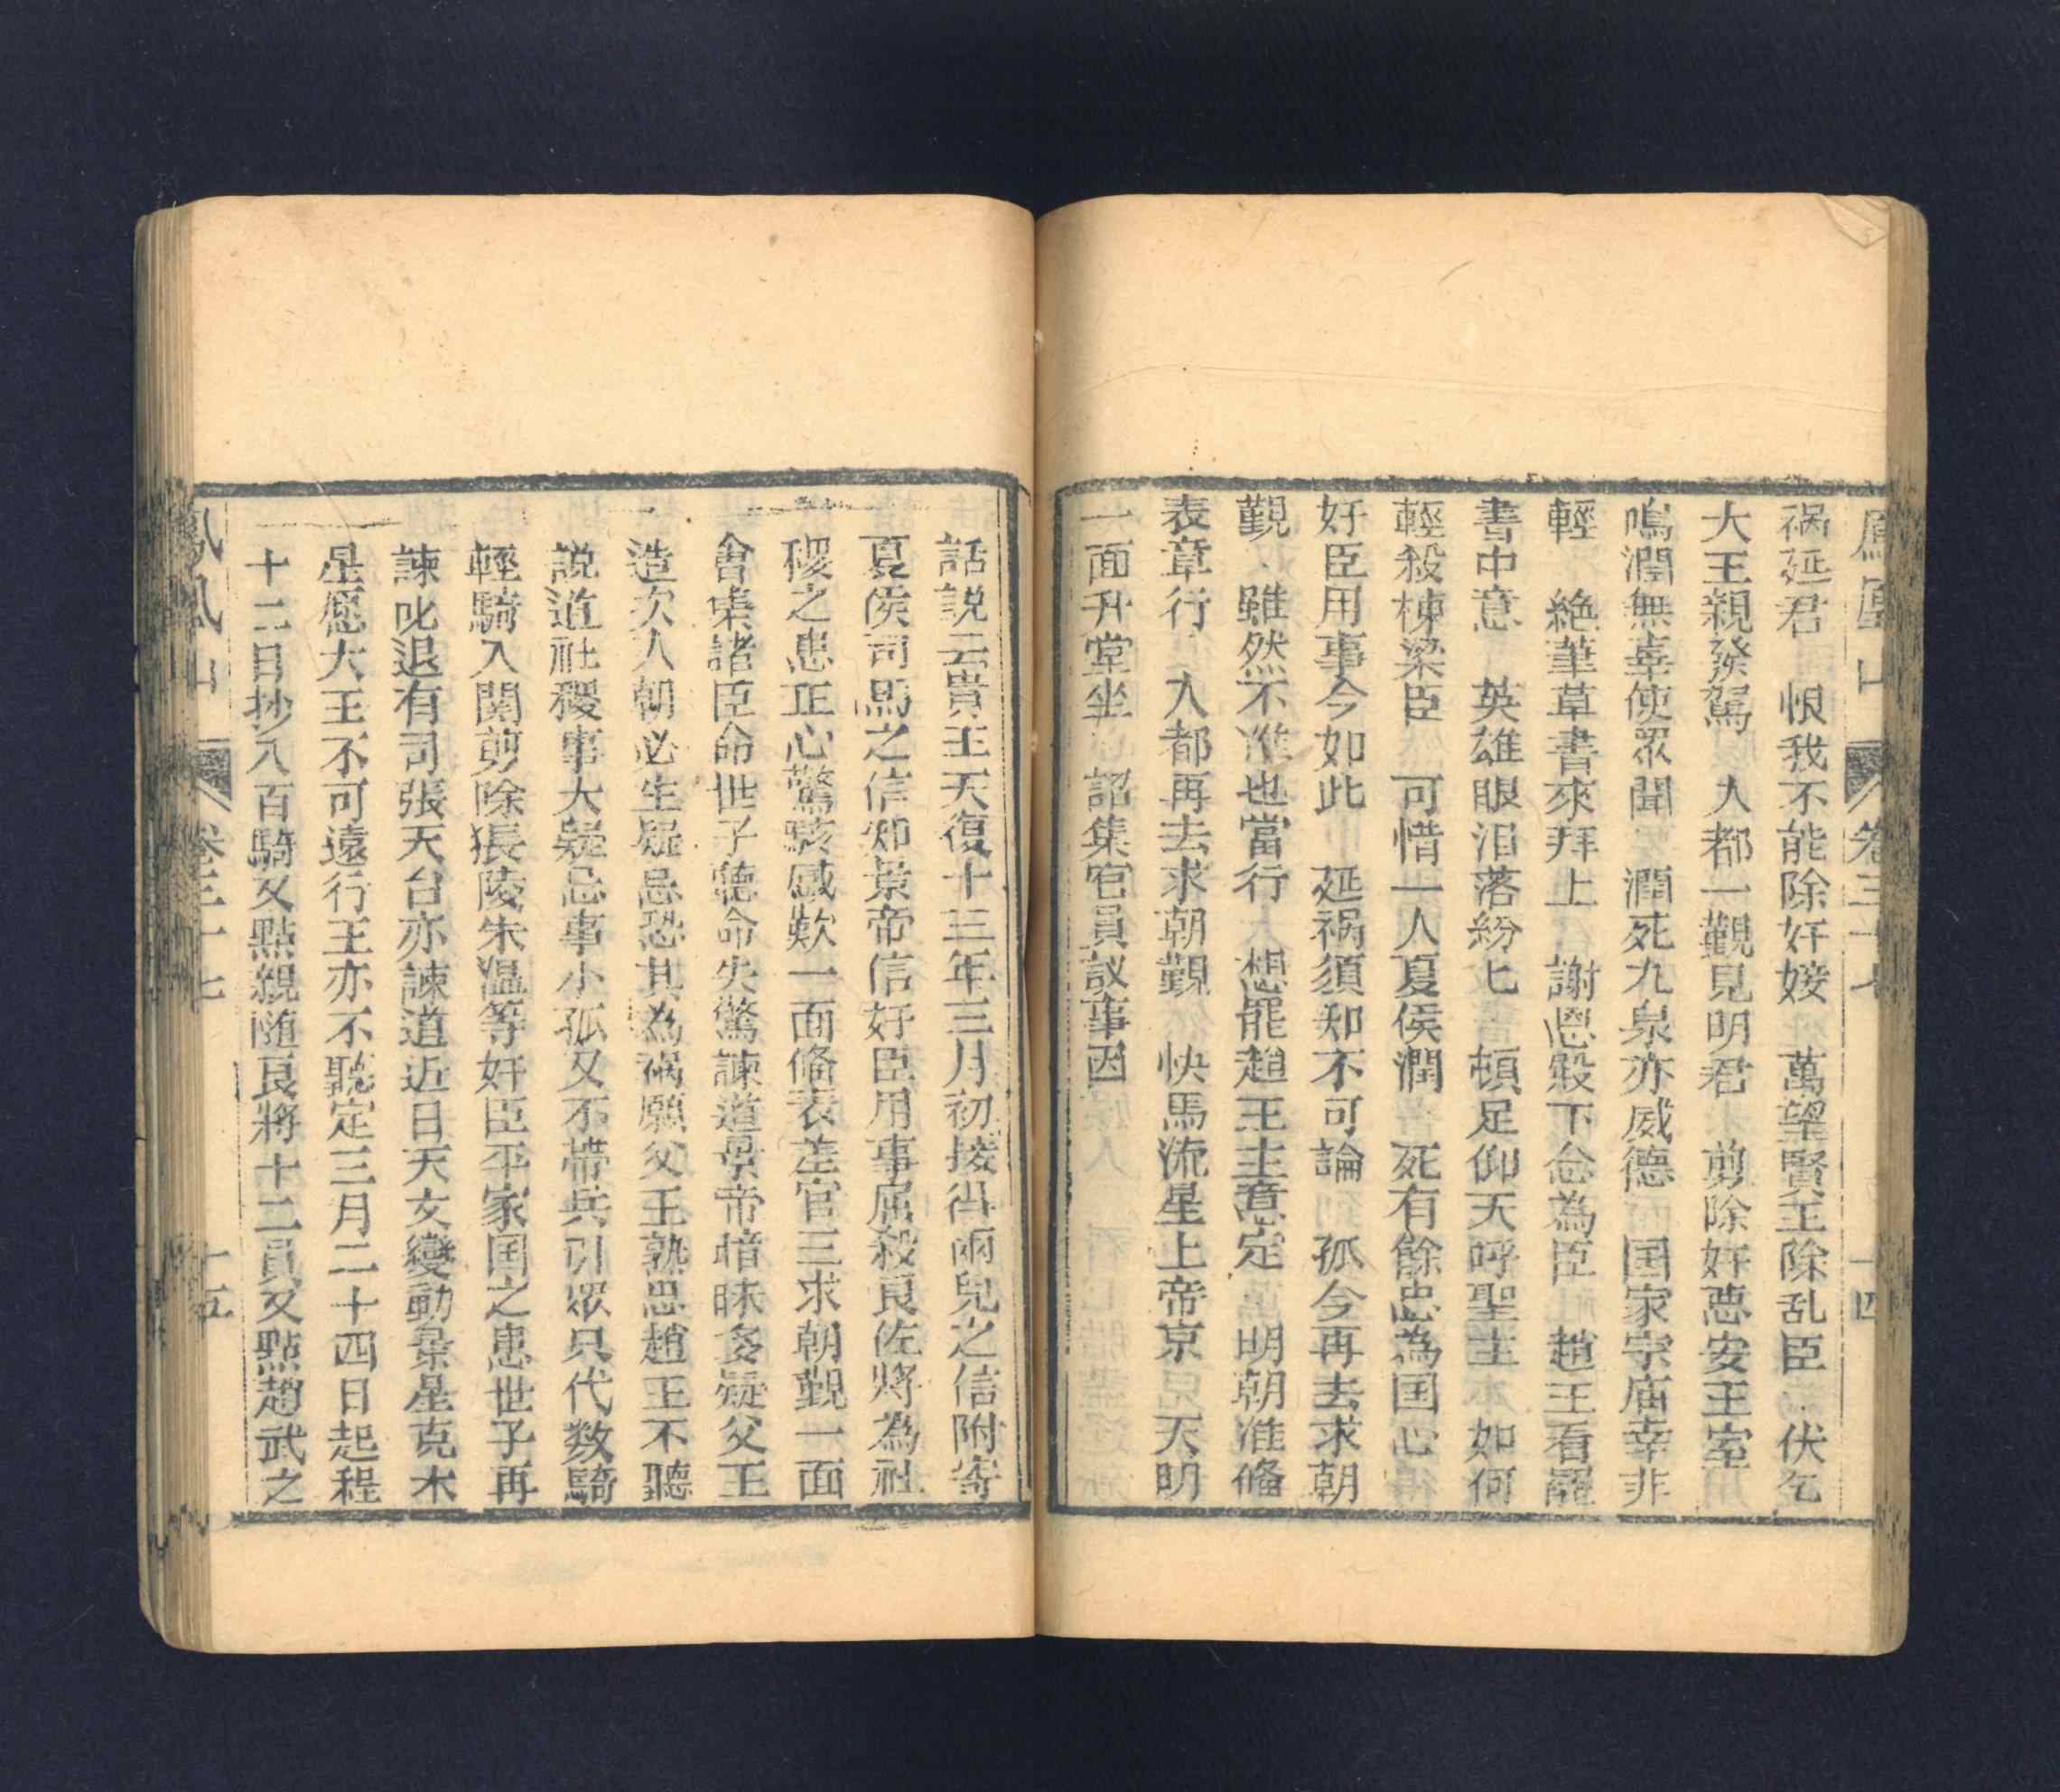 鳳凰山 卷三十七 十四
祸延君 恨我不能除奸妾 萬望賢王除乱臣 伏乞
大王親發駕 入都一覲見明君 剪除奸惡安主室
鳴潤無辜使眾聞 潤死九泉亦威德 国家宗庙幸非
輕 絶筆草書來拜上 謝恩殿下念為臣 趙王看羅
書中意 英雄眼泪落紛匕 頓足仰天呼聖主 如何
輕殺棟梁臣 可惜一人夏侯潤 死有餘忠為国心
奸臣用事今如此 延祸須知不可論 孤今再去求朝
覲 雖然不准也當行 想罷趙王主意定 明朝准俻
表章行 入都再去求朝覲 快馬流星上帝京 天明
一面升堂坐 詔集官員議事因
話説云貴王天復十三年三月初接得兩兒之信附寄
夏侯司馬之信知景帝信奸臣用事屈殺良佐將為社
稷之患正心驚駭感歎一面俻表差官三求朝覲一面
會集諸臣命世子聽命失驚諫道景帝暗昧多疑父王
造次入朝必生疑忌恐其為祸願父王熟思趙王不聽
説道社稷事大疑忌事小孤又不帶兵引眾只代数騎
輕騎入関剪除張陵朱溫等奸臣平家国之患世子再
諫叱退有司張天台亦諫道近日天文變動景星克木
星愿大王不可遠行王亦不聽定三月二十四日起程
十二日抄八百騎又點親随良將十二員又點趙武之
鳳凰山 卷三十七 十五